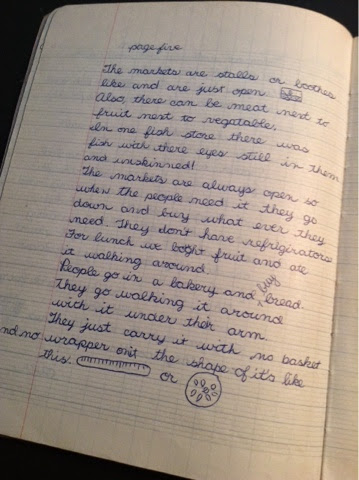 page five
The markets are stalls or boothes
like and are just open.
Also, there can be meat next to
fruit next to vegatable.
In one fish store there was
fish with there eyes still in them
and unskinned!
The markets are always open so
when the people need it they go
down and buy what ever they
need. They don't have refrigirators
For lunch we boght fruit and ate
it walking around.
People go in a bakery and buy bread.
They go walking it around
with it under their arm.
They just carry it with no basket
nd no wrapper on it the shape of it's like
this. or